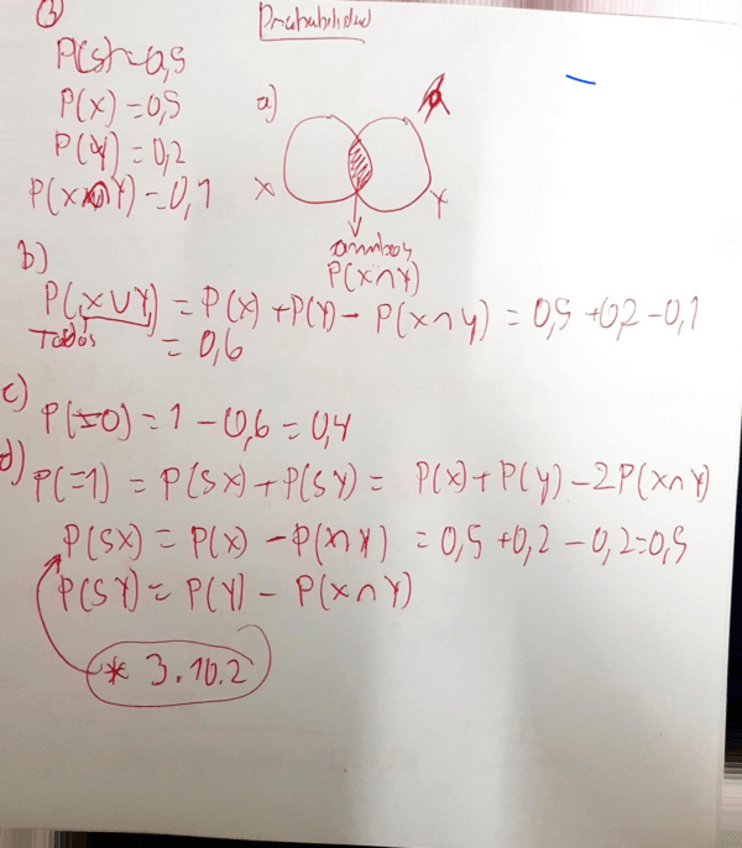 3
Probabilidad
P(S)=0,5
P(X)=0,5
P(Y)=0,2
P(X∩Y)=0,1
a)
X
Y
ambos
P(X∩Y)
b)
P(X∪Y)=P(X)+P(Y)-P(X∩Y)=0,5+0,2-0,1
Todos
=0,6
c)
P(=0)=1-0,6=0,4
d)
P(=1)=P(SX)+P(SY)=P(X)+P(Y)-2P(X∩Y)
P(SX)=P(X)-P(X∩Y)=0,5+0,2-0,2=0,5
P(SY)=P(Y)-P(X∩Y)
* 3.10.2